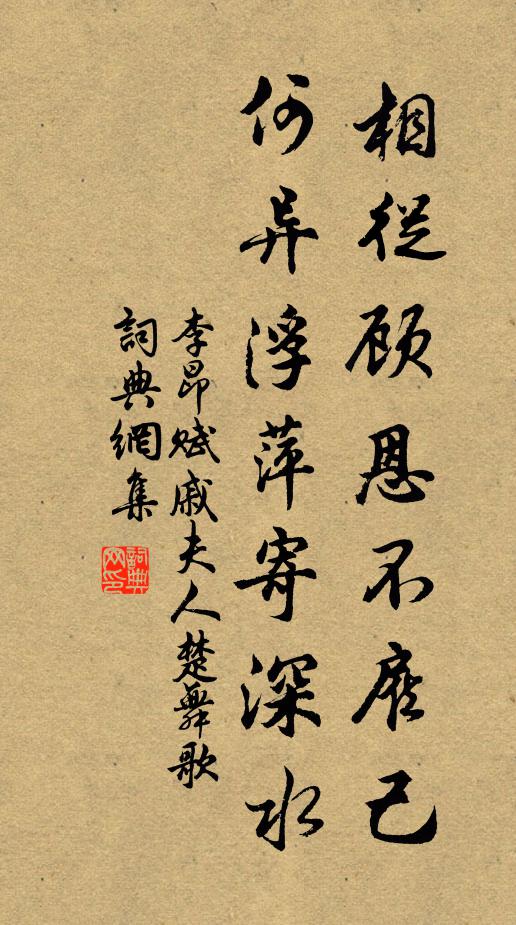 相從顾恩不雇己
何异浮萍寄深水
李昂賦戚夫人楚舞歌
詞典網集
詞典
网印